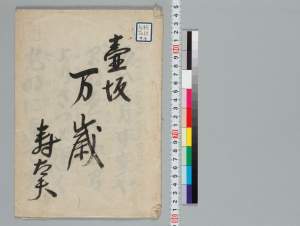 壷坂
万歳
寿太夫